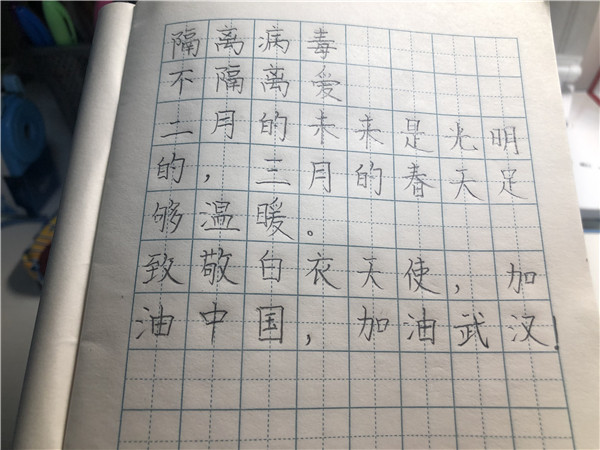 隔离病毒
不隔离爱
二月的未来是光明
的，三月的春天足
够温暖。
致敬白衣天使，加
油中国，加油武汉！